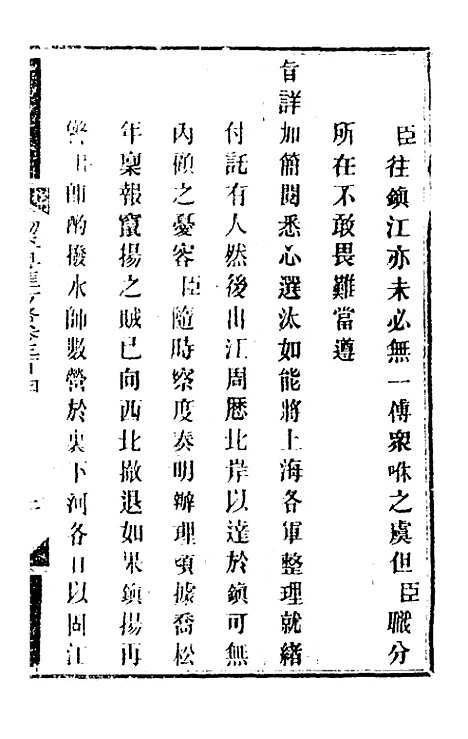 臣往鎮江亦未必無一傅眾咻之虞但臣職分
所在不敢畏難當遵
旨詳加簡閱悉心選汰如能將上海各軍整理就緒
付託有人然後出江周歷北岸以達於鎮可無
內顧之憂容臣隨時察度奏明辦理頃據喬松
年稟報竄揚之賊已向西北撤退如果鎮揚再
警臣師酌撥水師數營於裏下河各口以固江